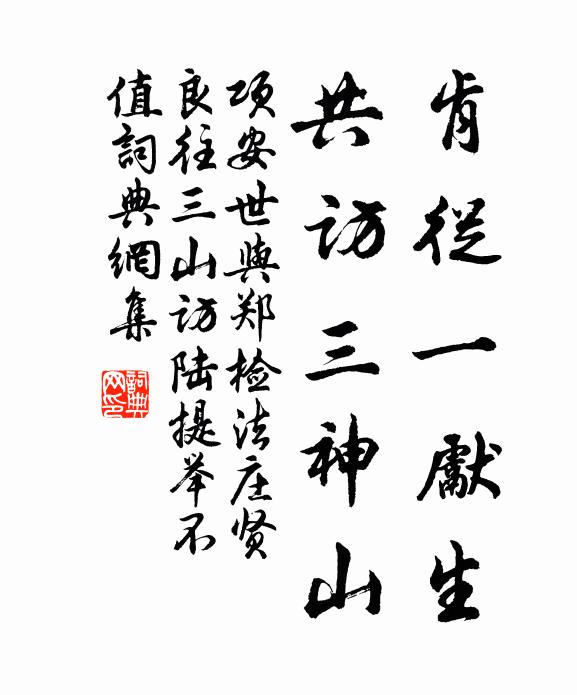 肯從一獻生
共訪三神山
项安世與郑检法庄贤
良往三山访陆提举不
值詞典網集
詞典
网印